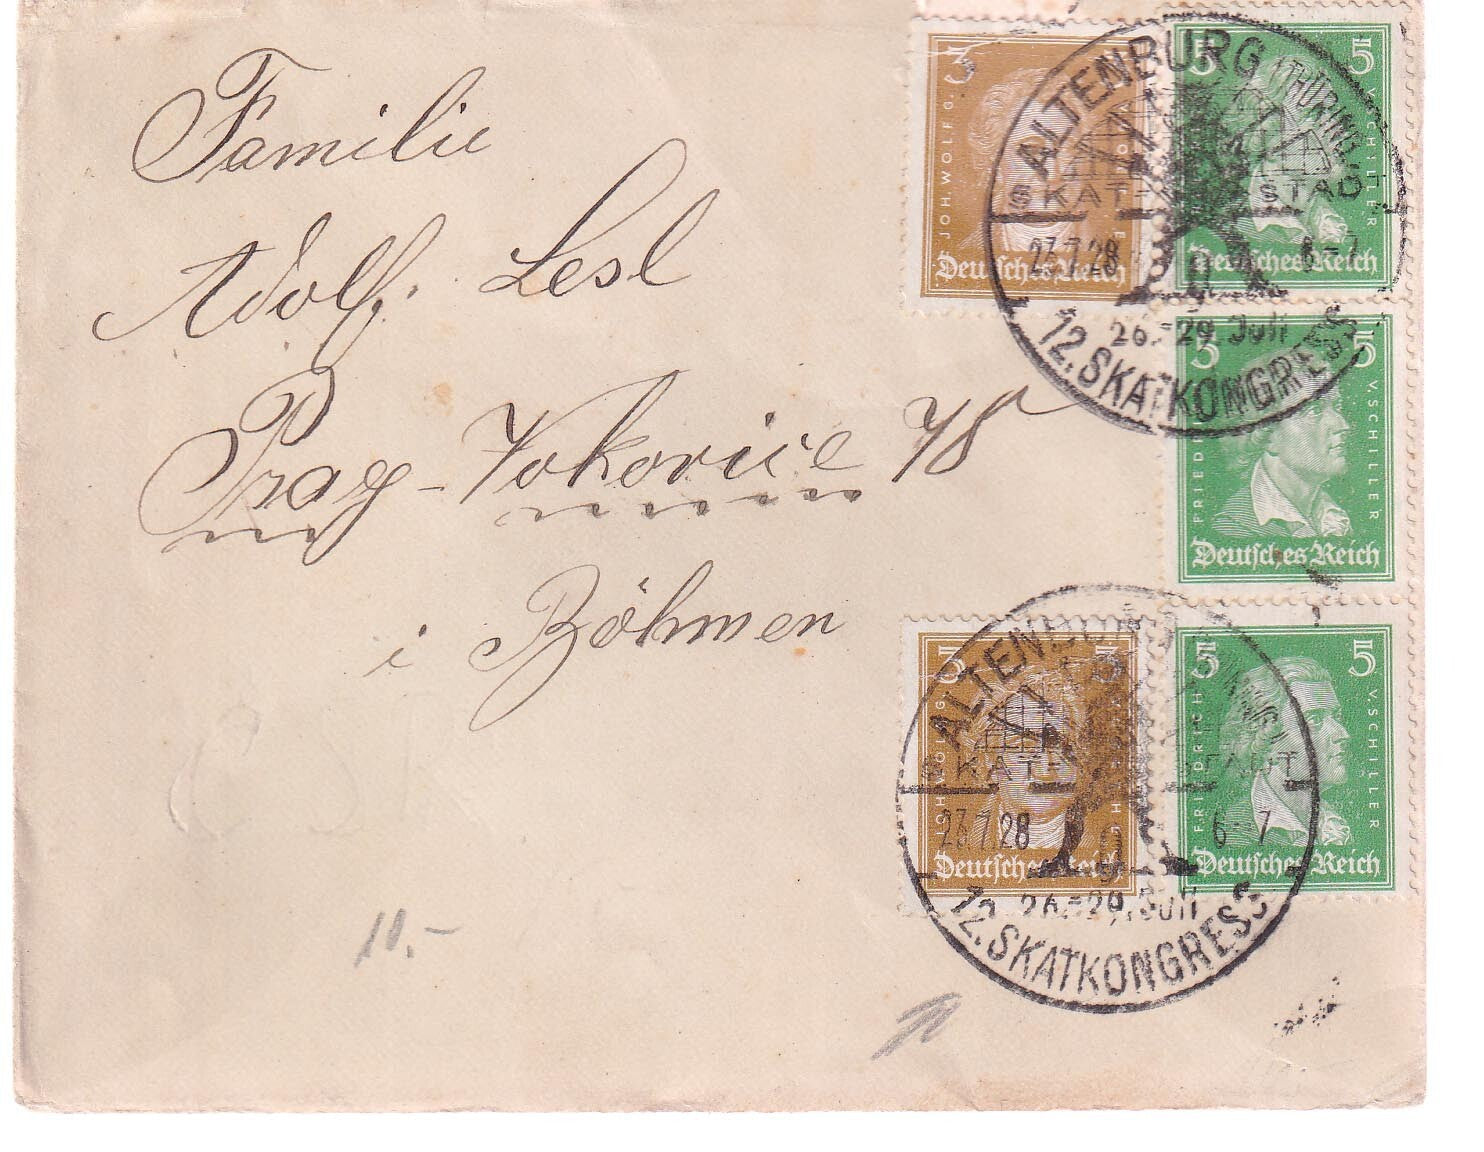 Familie
Adolf Lesl
Prag-Vokovice 78
i Böhmen
10.-
3
JOH. WOLFG.
Deutsches Reich
5 5
V. SCHILLER
Deutsches Reich
ALTENBURG (THÜRING.)
SKAT- STADT
23.7.28 6-7
26.-29. Juli
12. SKATKONGRESS
5 5
FRIEDRICH V. SCHILLER
Deutsches Reich
3 3
JOH. WOLFG.
Deutsches Reich
5 5
FRIEDRICH V. SCHILLER
Deutsches Reich
ALTENBURG
SKAT- STADT
23.7.28 6-7
26.-29. Juli
12. SKATKONGRESS